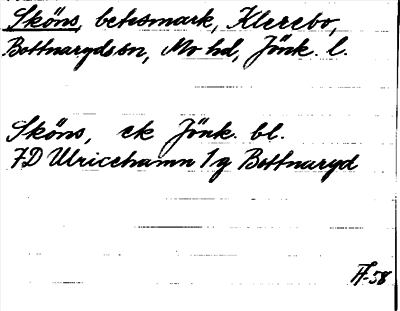 Sköns, betesmark, Klerebo,
Bottnaryds sn, Mo hd, Jönk. l.
Sköns, ek Jönk. bl.
7D Ulricehamn 1g Bottnaryd
FF-58